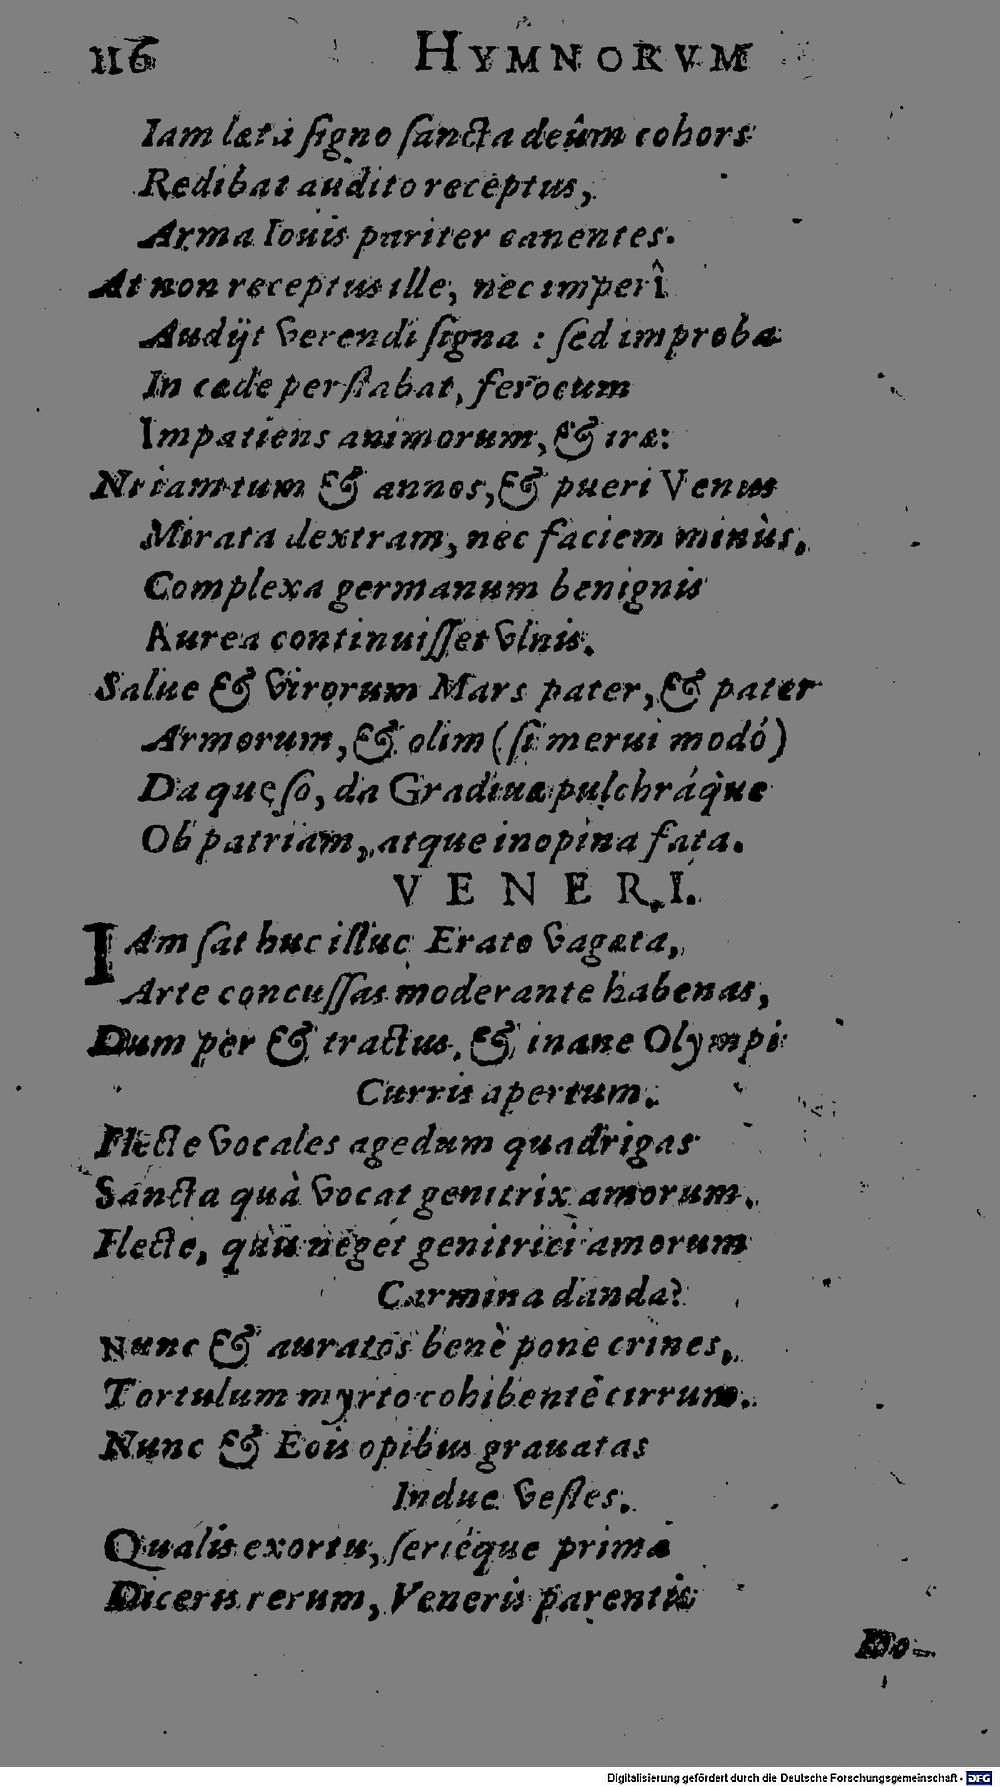 116 HYMNORVM
Iam læta ſigno ſancta deûm cohors
Redibat audito receptus,
Arma Iouis pariter canentes.
At non receptus ille, nec imperî
Audijt verendi ſigna : ſed improba
In cæde perſtabat, ferocum
Impatiens animorum, & iræ:
Ni iam tum & annos, & pueri Venus
Mirata dextram, nec faciem minùs,
Complexa germanum benignis
Aurea continuiſſet vlnis.
Salue & virorum Mars pater, & pater
Armorum, & olim (ſi merui modó)
Da quęſo, da Gradiue pulchráq̀ue
Ob patriam, atque inopina fata.
VENERI.
IAm ſat huc illuc Erato vagata,
Arte concuſſas moderante habenas,
Dum per & tractus, & inane Olympi
Curris apertum.
Flecte vocales agedum quadrigas
Sancta quà vocat genitrix amorum.
Flecte, quis neget genitrici amorum
Carmina danda?
Nunc & auratos benè pone crines,
Tortulum myrto cohibente cirrum.
Nunc & Eois opibus grauatas
Indue veſtes.
Qualis exortu, ſeriéque prima
Diceris rerum, Veneris parentis
Do-
Digitalisierung gefördert durch die Deutsche Forschungsgemeinschaft - DFG